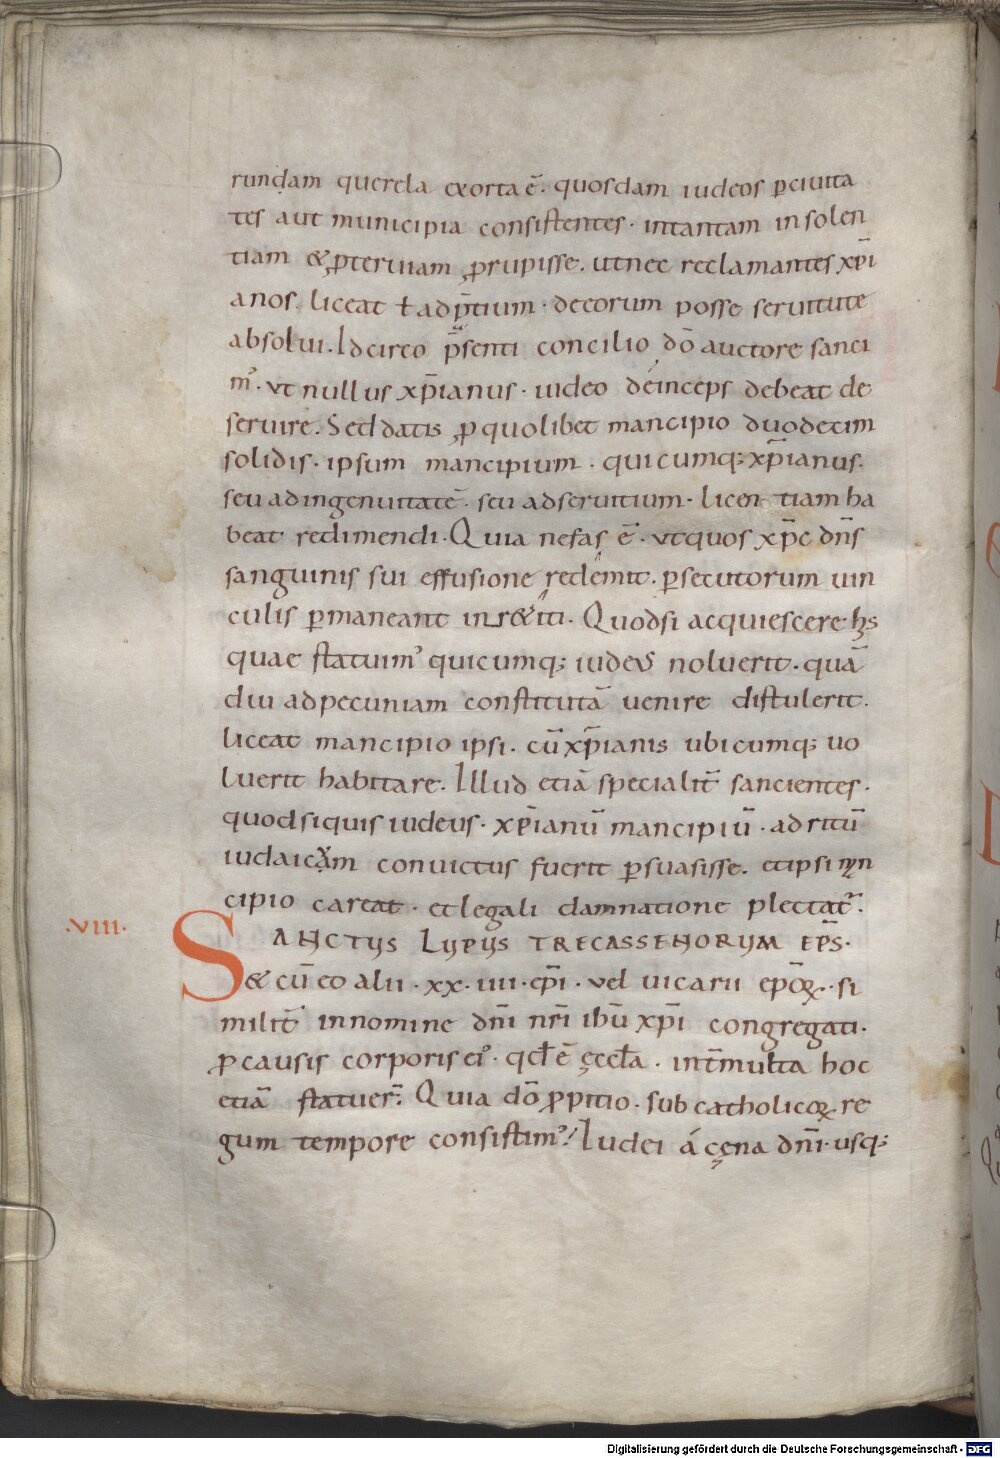 rundam querela exorta ē. quosdam iudeos ꝑciuita
tes aut municipia consistentes. intantam insolen
tiam & ꝓteruiam ꝓrupisse. utnec reclamantes xp̄i
anos. liceat ł adp̄tium. decorum posse seruitute
absolui. Idcirco p̄senti concilio dō auctore sanci
mꝰ. ut nullus xp̄ianus. iudeo deinceps debeat de
seruire. Sed datis ꝓ quolibet mancipio duodecim
solidis. ipsum mancipium. quicumq; xp̄ianus.
seu adingenuitatē. seu adseruitium. licen tiam ha
beat redimendi. Quia nefas ē. utquos xp̄c dn̄s
sanguinis sui effusione redemit. ꝑsecutorum uin
culis ꝑmaneant inr&iti. Quodsi acquiescere hįs
quae statuimꝰ quicumq; iudeus noluerit. quā
diu adpecuniam constitutā uenire distulerit.
liceat mancipio ipsi. cū xp̄ianis ubicumq; uo
luerit habitare. Illud etiā specialit̄ sancientes.
quodsiquis iudeus. xp̄ianū mancipiū. ad ritū
iudaicum conuictus fuerit ꝑsuasisse. etipsi man
cipio careat. et legali damnatione plectat̄.
.VIII.
SANCTUS LUPUS TRECASSENORUM EP̄S.
& cū eo alii. xx. iiii. ep̄i. uel uicarii ep̄oꝝ. si
milit̄ innomine dn̄i nr̄i ihū xp̄i congregati.
ꝓ causis corporis eiꝰ. qd̄ ē ęccła. int̄ multa hoc
etiā statuer̄. Quia dō ꝓpitio. sub catholicoꝝ re
gum tempore consistimꝰ. Iudei á cęna dn̄i. usq;
Digitalisierung gefördert durch die Deutsche Forschungsgemeinschaft - DFG